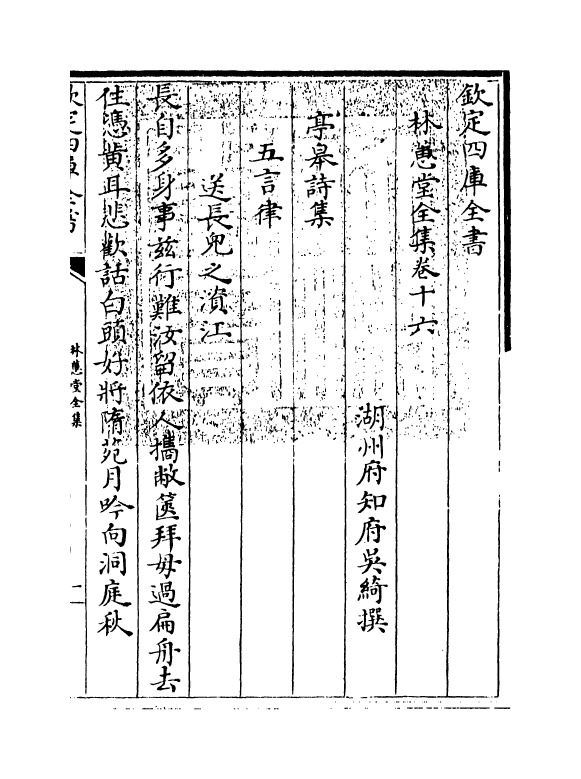 欽定四庫全書
林蕙堂全集卷十六
湖州府知府吳綺撰
亭皋詩集
五言律
送長兒之濱江
長自多身事兹行難汝留依人攜敝篋拜母過扁舟去
住憑黃耳悲歡話白頭好將隋苑月吟向洞庭秋
欽定四庫全書
林蕙堂全集
一